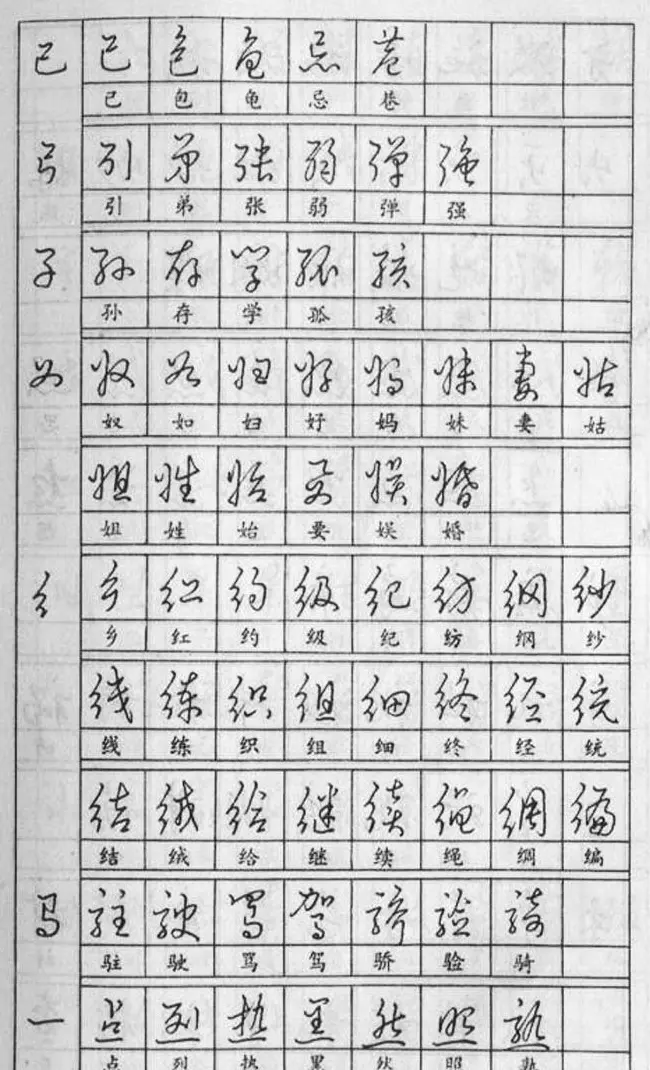 已 已 包 龟 忌 巷
已 包 龟 忌 巷
弓 引 弟 张 弱 弹 强
引 弟 张 弱 弹 强
子 孙 存 学 孤 孩
孙 存 学 孤 孩
女 奴 如 妇 好 妈 妹 妻 姑
奴 如 妇 好 妈 妹 妻 姑
姐 姓 始 要 娱 婚
姐 姓 始 要 娱 婚
纟 乡 红 约 级 纪 纺 纲 纱
乡 红 约 级 纪 纺 纲 纱
线 练 织 组 细 终 经 统
线 练 织 组 细 终 经 统
结 绒 给 继 续 绳 绸 编
结 绒 给 继 续 绳 绸 编
马 驻 驶 骂 驾 骄 验 骑
驻 驶 骂 驾 骄 验 骑
一 点 烈 热 黑 然 照 熟
点 热 黑 然 照 熟